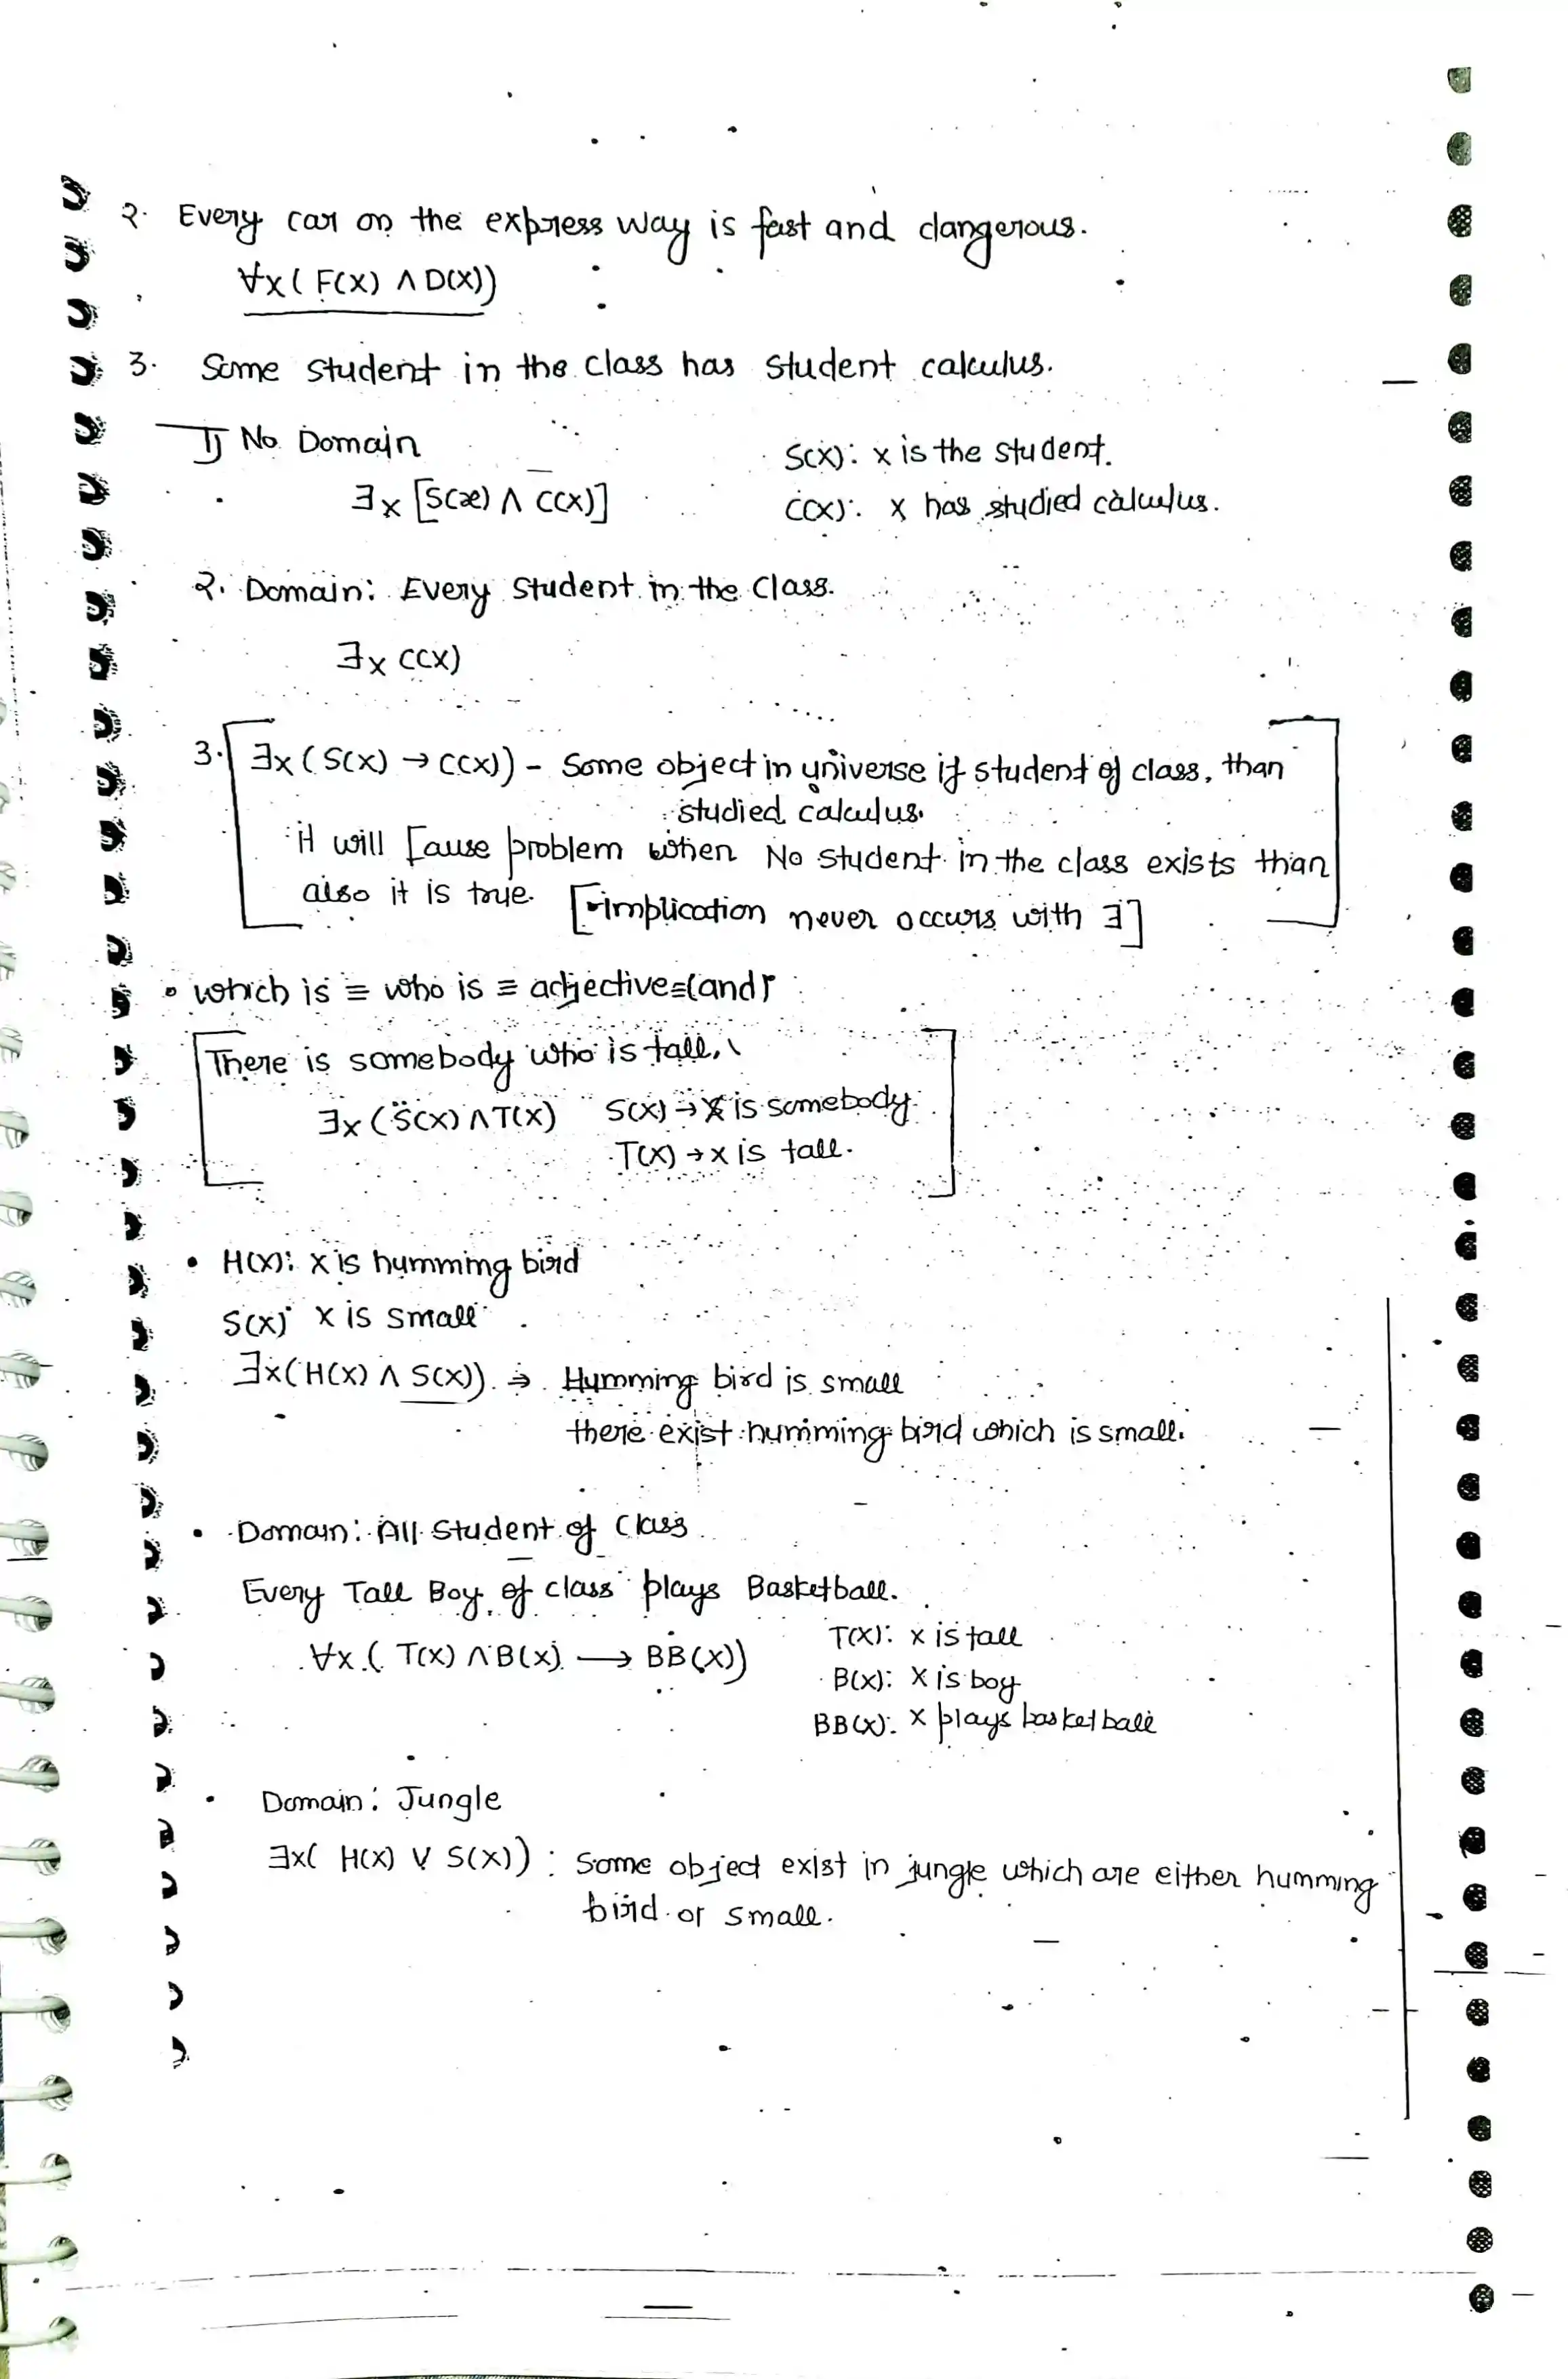 2. Every car on the express way is fast and dangerous.
∀x ( F(x) ∧ D(x))
3. Some student in the class has student calculus.
1) No Domain
S(x): x is the student.
∃x [S(x) ∧ C(x)]
C(x): x has studied calculus.
2. Domain: Every student in the class.
∃x C(x)
3. ∃x ( S(x) → C(x)) - Some object in universe if student of class, than
studied calculus.
it will cause problem when No student in the class exists than
also it is true. [implication never occurs with ∃]
• which is ≡ who is ≡ adjective ≡ (and)
There is somebody who is tall.
∃x ( S(x) ∧ T(x) S(x) → x is somebody.
T(x) → x is tall.
• H(x): x is humming bird
S(x) x is small
∃x(H(x) ∧ S(x)) ⇒ Humming bird is small
there exist humming bird which is small.
• Domain: All student of class
Every Tall Boy of class plays Basketball.
T(x): x is tall
∀x ( T(x) ∧ B(x) → BB(x))
B(x): x is boy
BB(x): x plays basketball
• Domain: Jungle
∃x( H(x) ∨ S(x)) : Some object exist in jungle which are either humming
bird or small.